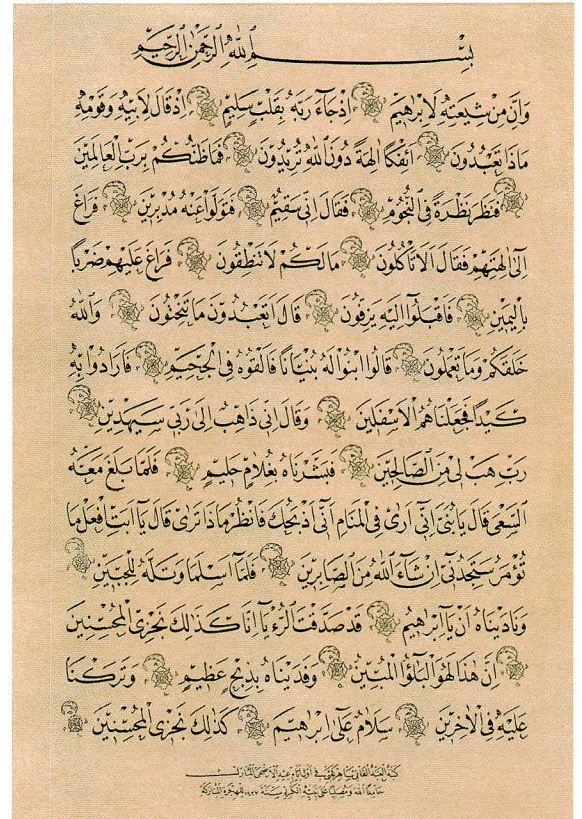 بِسْمِ ٱللّٰهِ ٱلرَّحْمٰنِ ٱلرَّحِيمِ
وَاِنَّ مِنْ شِيعَتِهٖ لَاِبْرٰهِيمَ اِذْ جَٓاءَ رَبَّهُ بِقَلْبٍ سَلِيمٍ اِذْ قَالَ لِاَبِيهِ وَقَوْمِهٖ
مَاذَا تَعْبُدُونَ اَئِفْكًا اٰلِهَةً دُونَ ٱللّٰهِ تُرِيدُونَ فَمَا ظَنُّكُمْ بِرَبِّ ٱلْعَالَمِينَ
فَنَظَرَ نَظْرَةً فِى ٱلنُّجُومِ فَقَالَ اِنِّى سَقِيمٌ فَتَوَلَّوْا عَنْهُ مُدْبِرِينَ فَرَاغَ
اِلٰٓى اٰلِهَتِهِمْ فَقَالَ اَلَا تَأْكُلُونَ مَا لَكُمْ لَا تَنْطِقُونَ فَرَاغَ عَلَيْهِمْ ضَرْبًا
بِالْيَمِينِ فَاَقْبَلُٓوا اِلَيْهِ يَزِفُّونَ قَالَ اَتَعْبُدُونَ مَا تَنْحِتُونَ وَٱللّٰهُ
خَلَقَكُمْ وَمَا تَعْمَلُونَ قَالُوا ابْنُوا لَهُ بُنْيَانًا فَاَلْقُوهُ فِى ٱلْجَحِيمِ فَاَرَادُوا بِهٖ
كَيْدًا فَجَعَلْنَاهُمُ ٱلْاَسْفَلِينَ وَقَالَ اِنِّى ذَاهِبٌ اِلٰى رَبِّى سَيَهْدِينِ
رَبِّ هَبْ لِى مِنَ ٱلصَّالِحِينَ فَبَشَّرْنَاهُ بِغُلَامٍ حَلِيمٍ فَلَمَّا بَلَغَ مَعَهُ
ٱلسَّعْىَ قَالَ يَا بُنَىَّ اِنِّٓى اَرٰى فِى ٱلْمَنَامِ اَنِّٓى اَذْبَحُكَ فَانْظُرْ مَاذَا تَرٰى قَالَ يَٓا اَبَتِ افْعَلْ مَا
تُؤْمَرُ سَتَجِدُنِٓى اِنْ شَٓاءَ ٱللّٰهُ مِنَ ٱلصَّابِرِينَ فَلَمَّٓا اَسْلَمَا وَتَلَّهُ لِلْجَبِينِ
وَنَادَيْنَاهُ اَنْ يَٓا اِبْرٰهِيمُ قَدْ صَدَّقْتَ ٱلرُّءْيَا اِنَّا كَذٰلِكَ نَجْزِى ٱلْمُحْسِنِينَ
اِنَّ هٰذَا لَهُوَ ٱلْبَلٰٓؤُا ٱلْمُبِينُ وَفَدَيْنَاهُ بِذِبْحٍ عَظِيمٍ وَتَرَكْنَا
عَلَيْهِ فِى ٱلْاٰخِرِينَ سَلَامٌ عَلٰٓى اِبْرٰهِيمَ كَذٰلِكَ نَجْزِى ٱلْمُحْسِنِينَ
كتبه العبد الفانى فى اول ايام عيد الاضحى المبارك
حامدا لله ومصليا على نبيه الكريم سنة للهجرة المباركة